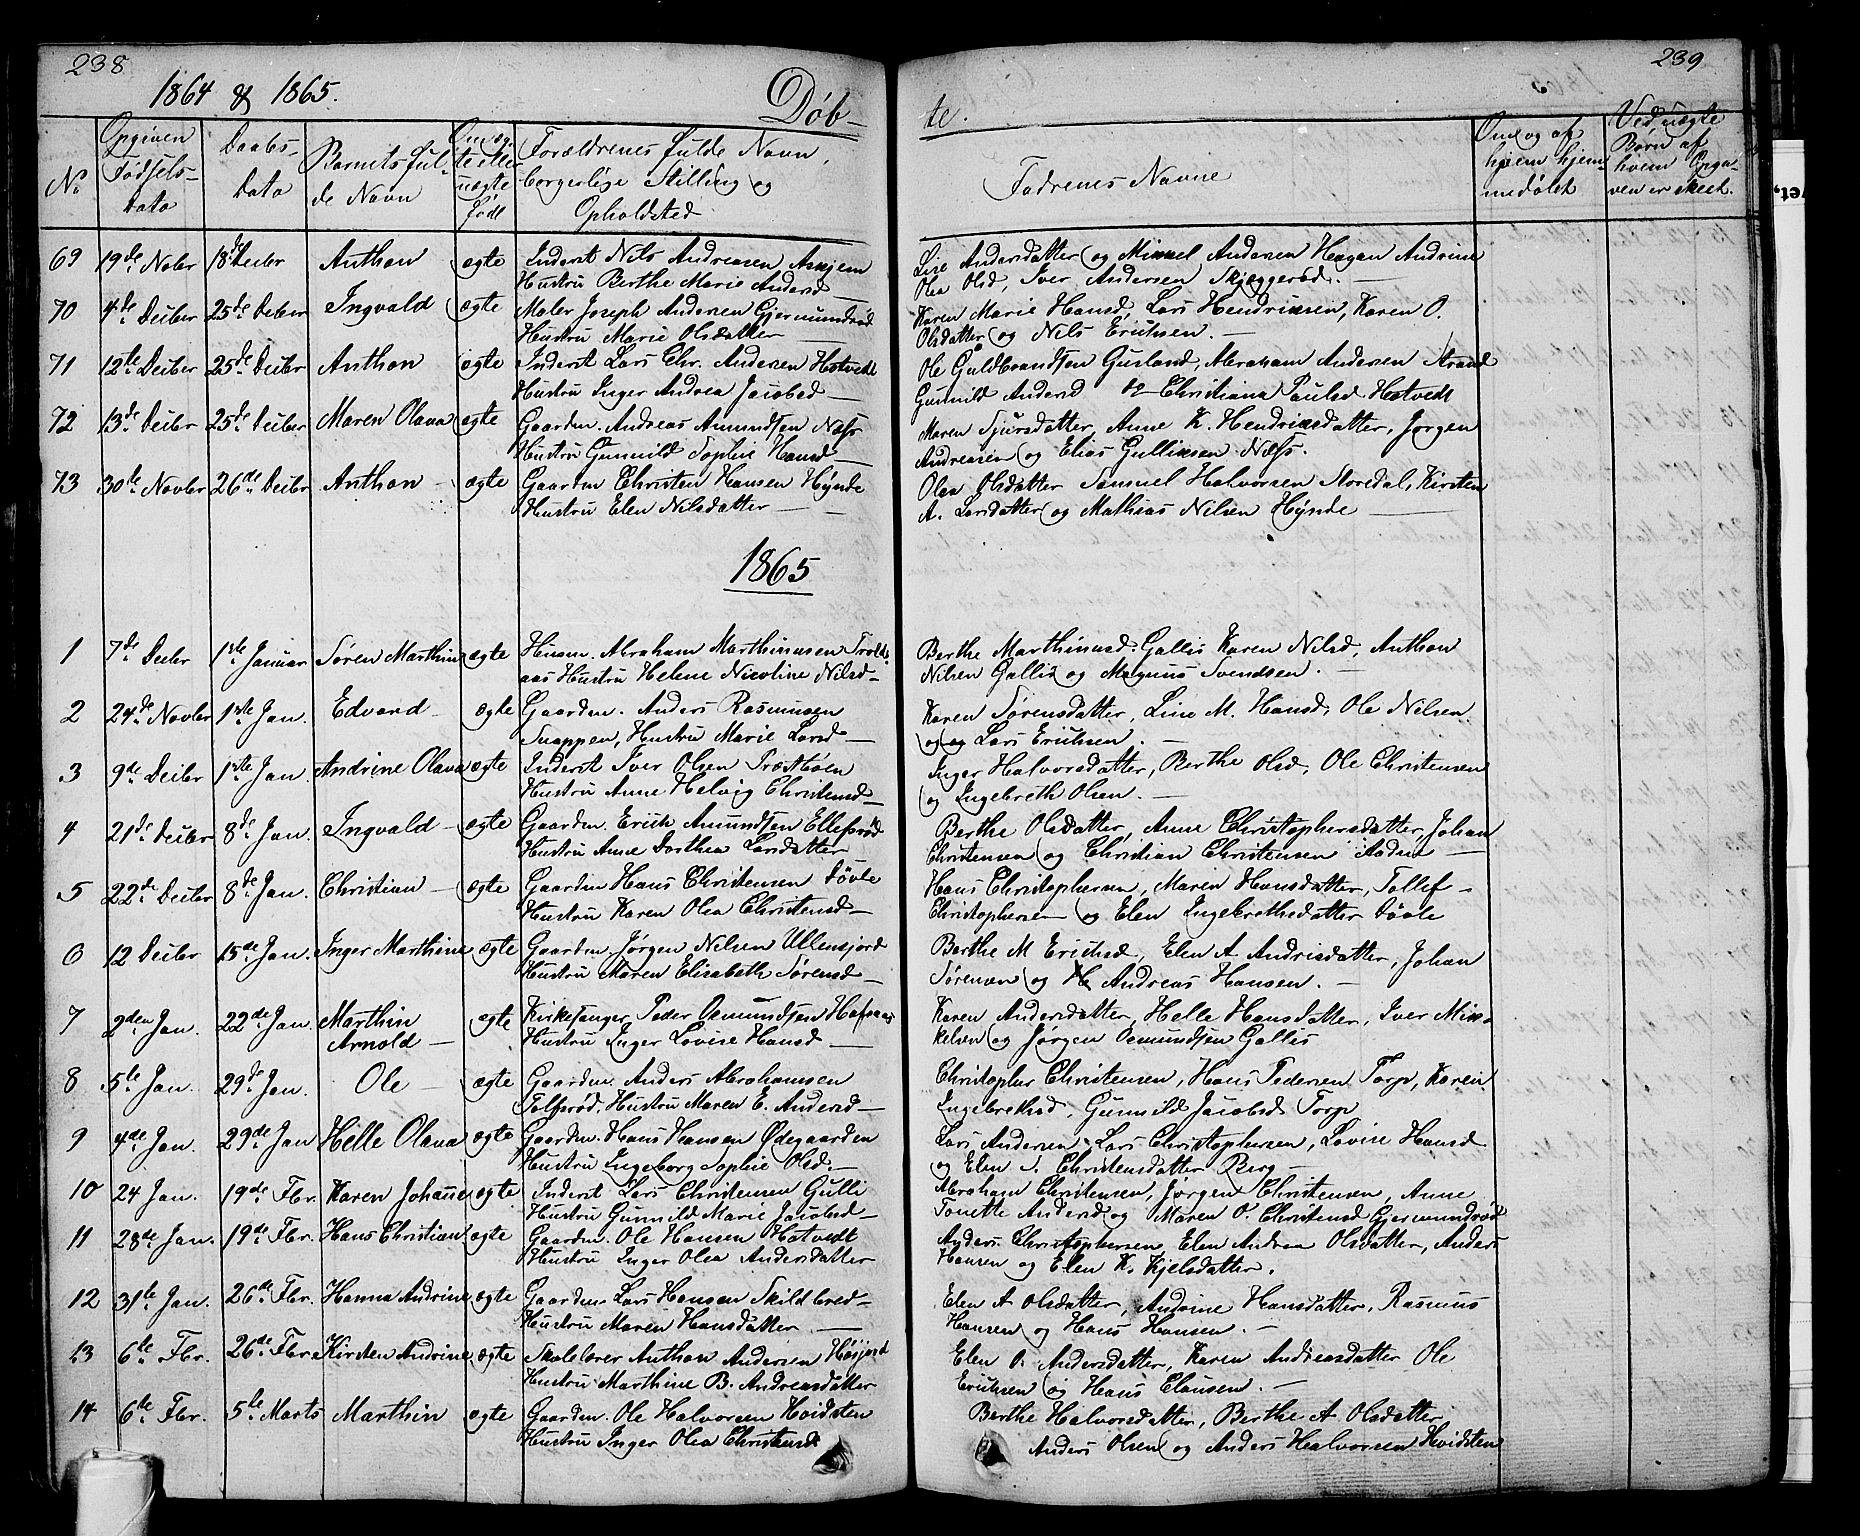 238
1864 & 1865.
Döb-
No
Opgiven Fødsels-Dato
Daabs-Dato
Barnets ful-de Navn
Om ægte eller uægte født
Forældrenes fulde Navn, borgerlige Stilling og Opholdsted
69 19de Novbr 18de Decbr Anthon ægte Inderst Nils Andreasen Askjem
Hustru Berthe Marie Andersd —
70 4de Decbr 25de Decbr Ingvald ægte Maler Joseph Andersen Gjermundrød
Hustru Marie Olsdatter —
71 12te Decbr 25de Decbr Anthon ægte Inderst Lars Chr. Andersen Hotvedt
Hustru Inger Andrea Jacobsd —
72 13de Decbr 25de Decbr Maren Olava ægte Gaardm. Andreas Amundsen Næss
Hustru Gunnild Sophie Hansd —
73 30te Novbr 26de Decbr Anthon - ægte Gaardm Christen Hansen Hynde
Hustru Elen Nilsdatter —
1865
1 7de Decbr 1ste Januar Søren Marthin ægte Husm. Abraham Marthinusen Trold-
aas Hustru Helene Nicoline Nilsd -
2 24de Novbr 1ste Jan. Edvard - ægte Gaardm. Anders Rasmusen
Snappen, Hustru Marie Larsd —
3 9de Decbr 1ste Jan Andrine Olava ægte Inderst Iver Olsen Træstøen
Hustru Anne Helvig Christensd —
4 21de Decbr 8de Jan. Ingvald - ægte Gaardm. Erich Amundsen Ellefsrød
Hustru Anne Dorthea Larsdatter
5 22de Decbr 8de Jan. Christian - ægte Gaardm Hans Christensen Døvle
Hustru Karen Olea Christensd —
6 12 Decbr 15de Jan. Inger Marthine ægte Gaardm. Jørgen Nilsen Ullensjord
Hustru Maren Elisabeth Sørensd —
7 2den Jan. 22de Jan. Marthin Arnold — ægte Kirkesanger Peder Osmundsen Hafsaas
Hustru Inger Lovise Hansd —
8 5te Jan. 29de Jan. Ole - ægte Gaardm. Anders Abrahamsen
Tolfsrød. Hustru Maren E. Andersd —
9 4de Jan. 29de Jan Helle Olava ægte Gaardm. Hans Hansen Ødegaarden
Hustru Ingeborg Sophie Olsd. —
10 24 Jan. 19de Fbr. Karen Johane ægte Inderst Lars Christensen Gulli
Hustru Gunnild Marie Jacobsd —
11 28de Jan. 19de Fbr. Hans Christian ægte Gaardm. Ole Hansen Hotvedt
Hustru Inger Olea Andersdatter
12 31te Jan. 26de Fbr. Hanna Andrine ægte Gaardm. Lars Hansen Skildbred -
Hustru Maren Hansdatter —
13 6te Fbr. 26de Fbr. Kirsten Andrine ægte Skolelærer Anthon Andersen Høijord
Hustru Marthine B. Andreasdatter
14 6te Fbr. 5te Marts Marthin ægte Gaardm. Ole Halvorsen Hvidsten
Hustru Inger Olea Christensd
239
te.
Fadrenes Navne
Om og af hvem hjem-medøbt
Ved uægte Børn af hvem Opga-ven er skeet.
Lise Andersdatter og Mikkel Andersen Haugan Andrine
Olea Olsd, Iver Andersen Skjeggerød. —
Karen Marie Hansd, Lars Hendriksen, Karen O.
Olsdatter og Nils Erichsen. —
Ole Guldbrandsen Gusland, Abraham Andersen Strand
Gunnild Andersd og Christiana Paulsd Hotvedt
Maren Sjursdatter, Anne K. Hendriksdatter, Jørgen
Andreasen og Elias Gulliksen Næss.
Olea Olsdatter Samuel Halvorsen Stordal, Kirsten
A. Larsdatter og Mathias Nilsen Hynde —
Berthe Marthinusd. Gallis Karen Nilsd, Anthon
Nilsen Gallis og Magnus Svendsen. —
Karen Sørensdatter, Line M. Hansd, Ole Nilsen
og og Lars Erichsen. —
Inger Halvorsdatter, Berthe Olsd, Ole Christensen
og Ingebreth Olsen. —
Berthe Olsdatter, Anne Christophersdatter, Johan
Christensen og Christian Christensen —
Hans Christophersen, Maren Hansdatter, Tollef -
Christophersen og Elen Ingebrethsdatter Døvle
Berthe M Erichsd, Elen A Andrisdatter, Johan
Sørensen og H Andreas Hansen. —
Karen Andersdatter, Helle Hansdatter, Iver Mik-
kelsen og Jørgen Osmundsen Gallis
Christopher Christensen, Hans Pedersen Torp, Karen
Ingebrethsd. Gunnild Jacobsd Torp
Lars Andersen. Lars Christophersen, Lovise Hansd
og Elen S. Christensdatter Berg —
Abraham Christensen, Jørgen Christensen, Anne
Tonette Andersd og Maren O. Christensd Gjermundrød
Anders Christophersen, Elen Andrea Olsdatter, Anders
Hansen og Elen K. Kjelsdatter.
Elen A Olsdatter, Andrine Hansdatter, Rasmus
Hansen og Hans Hansen. —
Elen O. Andersdatter, Karen Andreasdatter Ole
Erichsen og Hans Clausen. —
Berthe Halvorsdatter, Berthe A Olsdatter
Anders Olsen og Anders Halvorsen Hvidsten